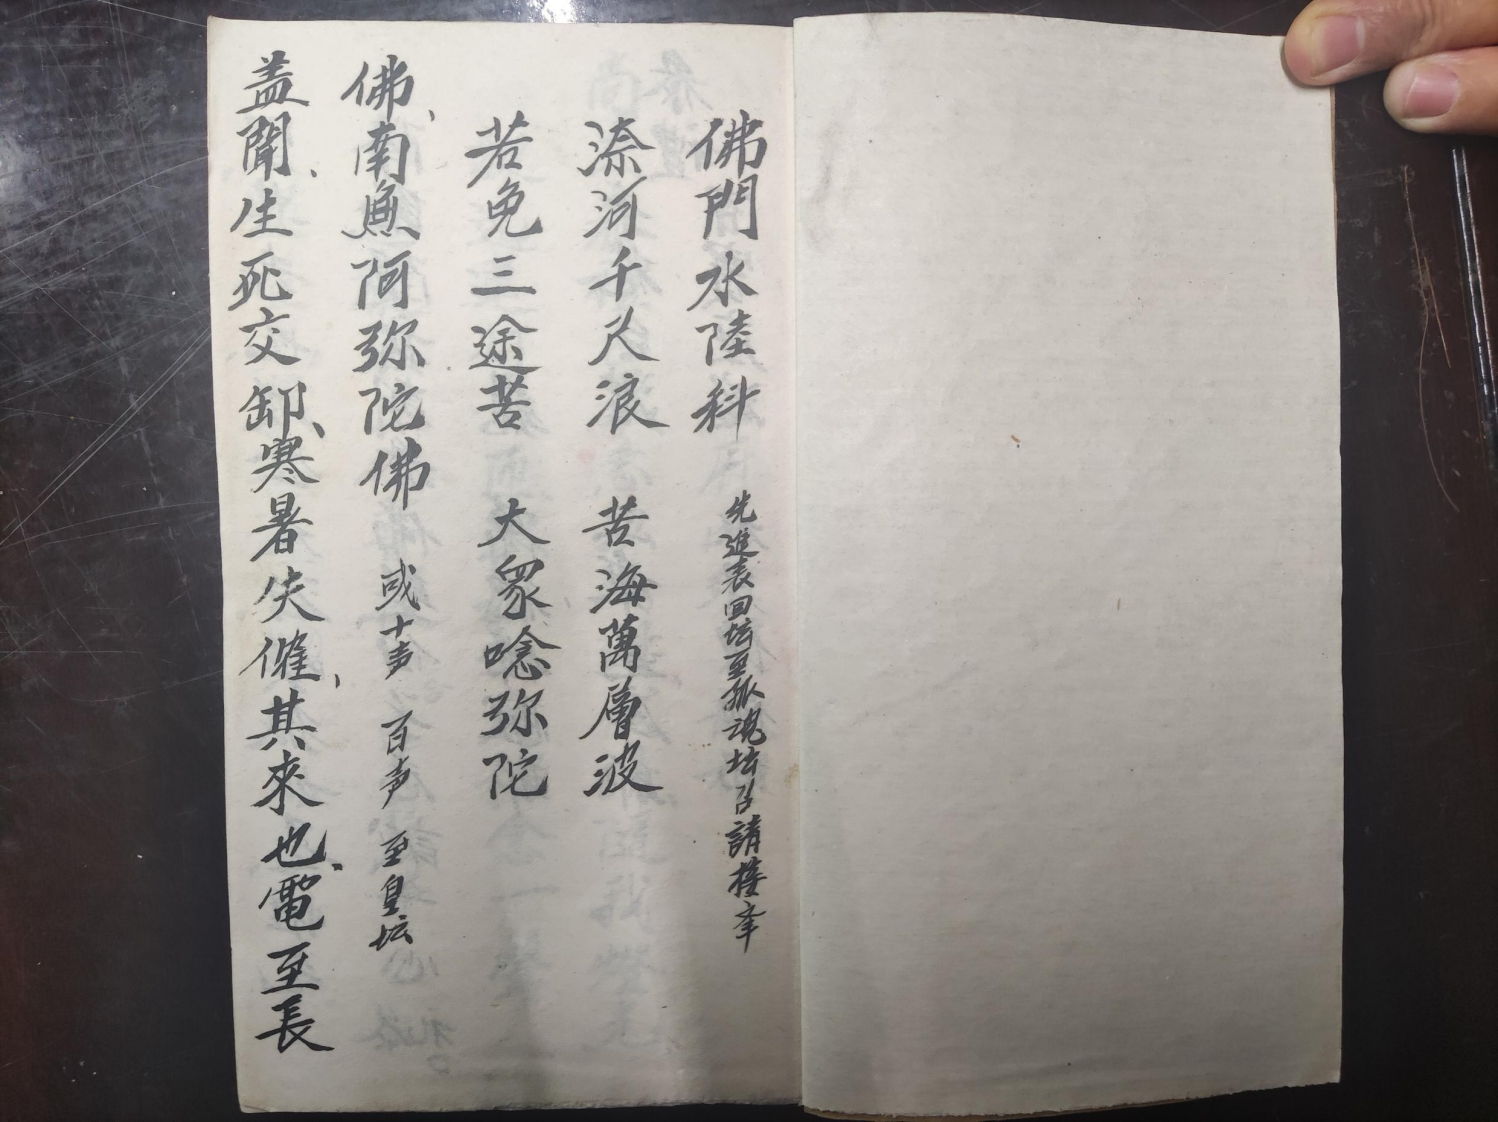 佛門水陸科 先進表回坛至孤魂坛召請接奉
渿河千尺浪 苦海萬層波
若免三途苦 大衆唸弥陀
佛、南無阿弥陀佛 或十声 百声 至皇坛
盖聞、生死交卸、寒暑失催、其來也、電至長